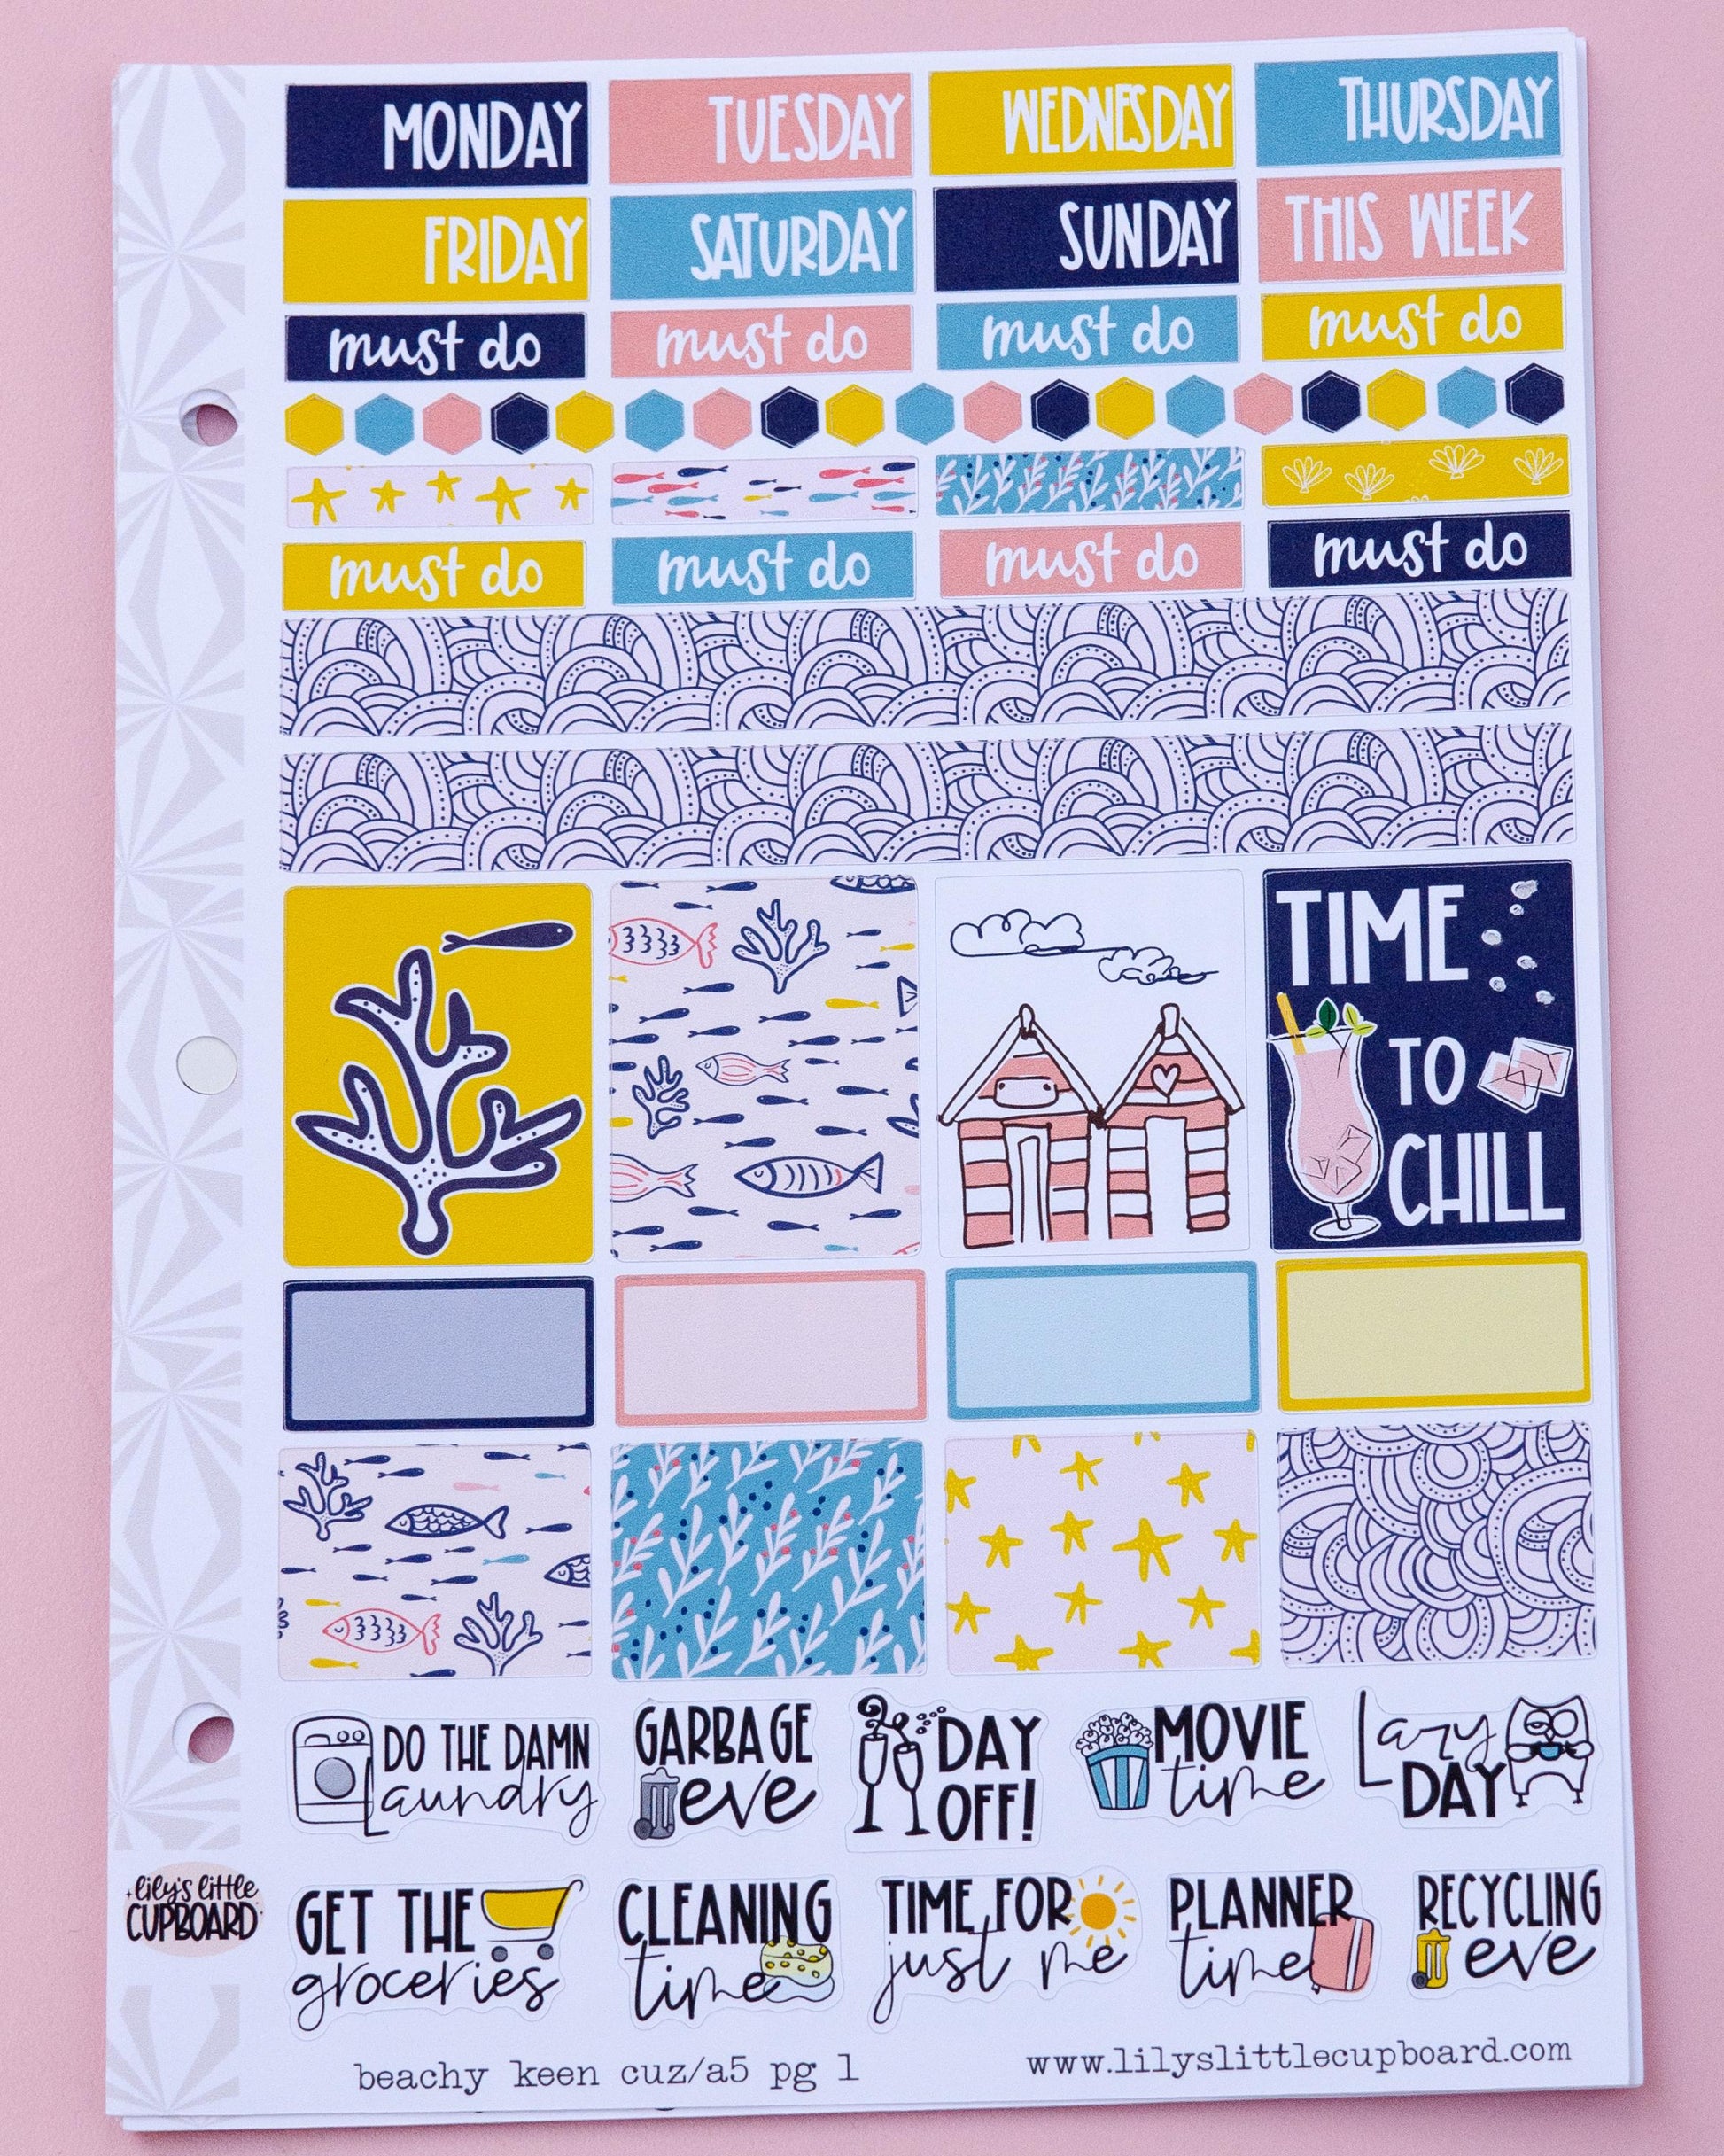 MONDAY
TUESDAY
WEDNESDAY
THURSDAY
FRIDAY
SATURDAY
SUNDAY
THIS WEEK
must do
must do
must do
must do
must do
must do
must do
must do
TIME
TO
CHILL
DO THE DAMN
Laundry
GARBAGE
eve
DAY
OFF!
MOVIE
time
Lazy
DAY
lily's little
CUPBOARD
GET THE
groceries
CLEANING
time
TIME FOR
just me
PLANNER
time
RECYCLING
eve
beachy keen cuz/a5 pg 1
www.lilyslittlecupboard.com